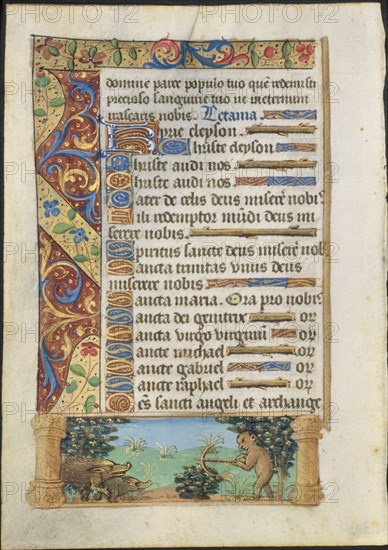 domine parce populo tuo quem redemisti
precioso sanguine tuo ne in eternum
irascaris nobis. Letania
Kyrie eleyson.
Christe eleyson
Christe audi nos
Christe audi nos
Pater de celis deus miserere nobis
Fili redemptor mundi deus mi
serere nobis.
Spiritus sancte deus miserere nob
Sancta trinitas unus deus
miserere nobis
Sancta maria. Ora pro nobis
Sancta dei genitrix or
Sancta virgo virginum or
Sancte michael or
Sancte gabriel or
Sancte raphael or
Omnes sancti angeli et archange